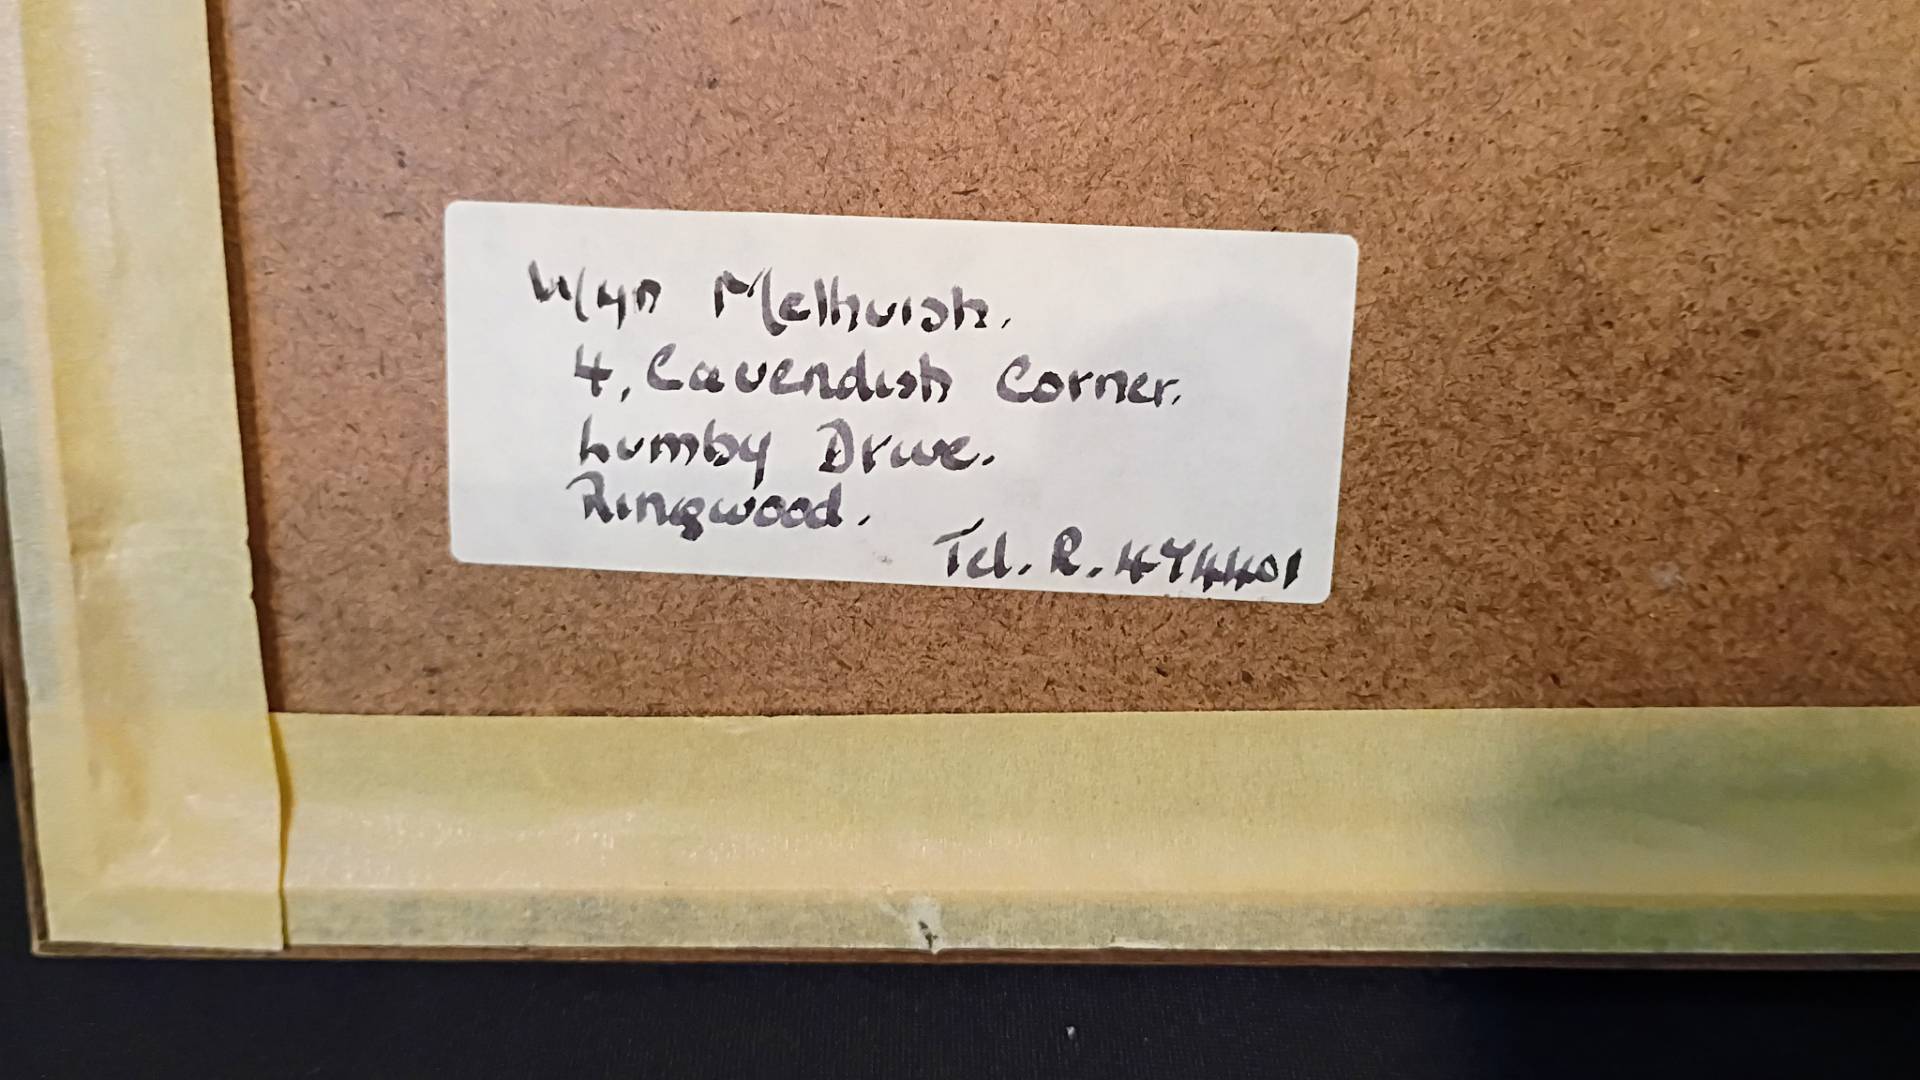 Wyn Melhuish.
4, Cavendish Corner,
Lumby Drive.
Ringwood.
Tel. R. 474401